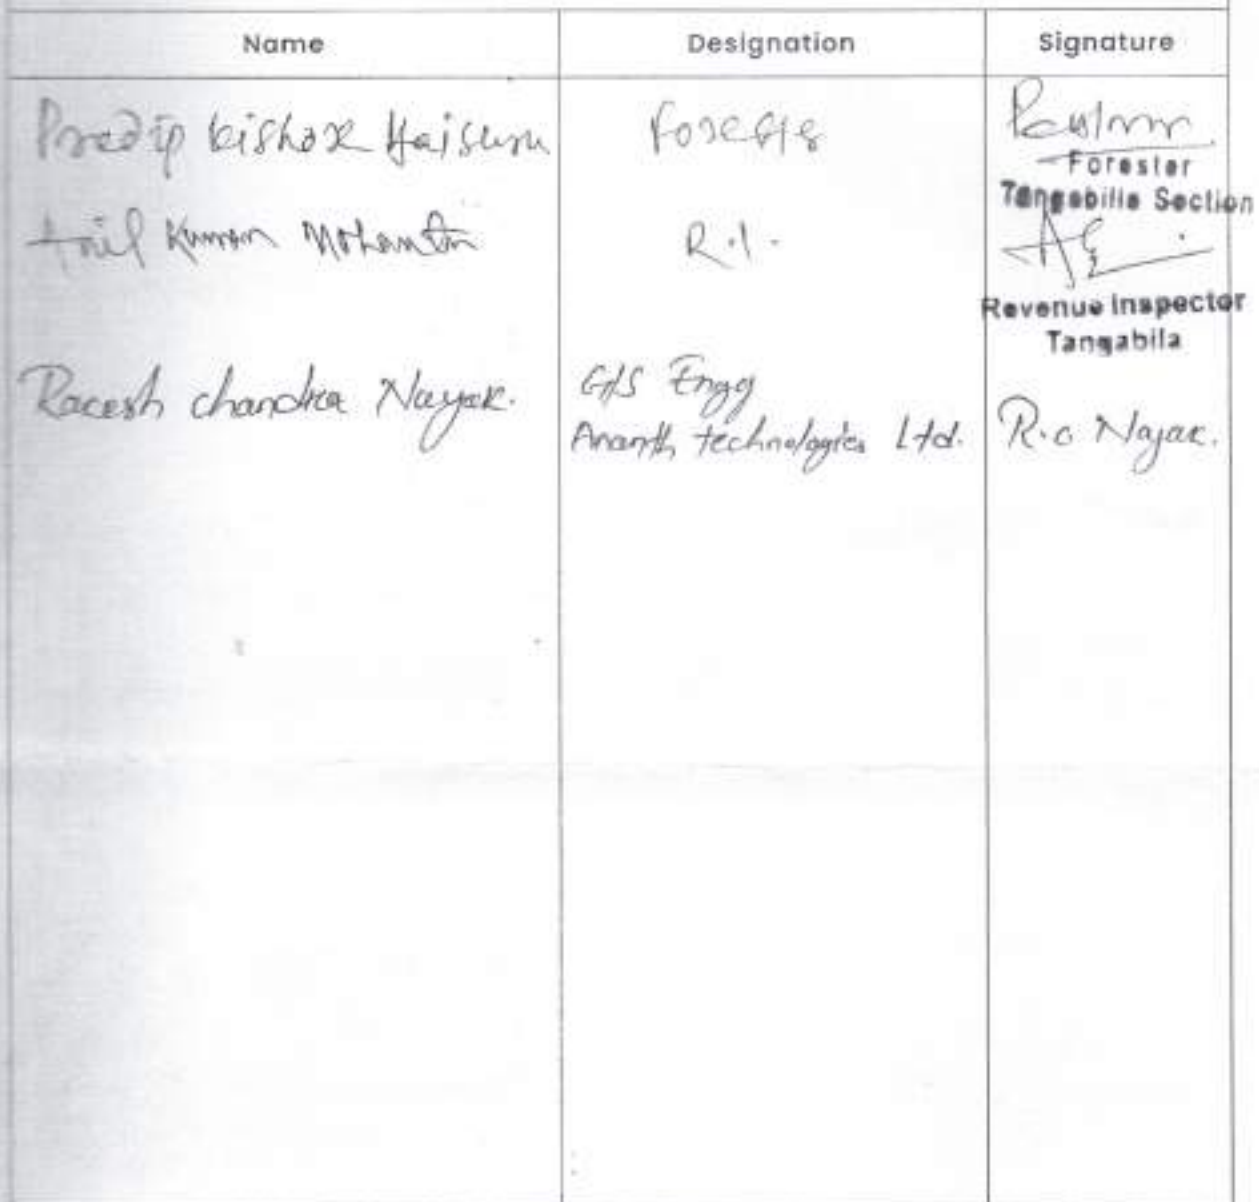 Name Designation Signature
Pradip kishor Haisuru Forester
Forester
Tangabilla Section
Anil Kumar Mohanta R.I.
Revenue Inspector
Tangabila
Racesh chandra Nayak. GIS Engg
Ananth technologies Ltd. R.c Nayak.